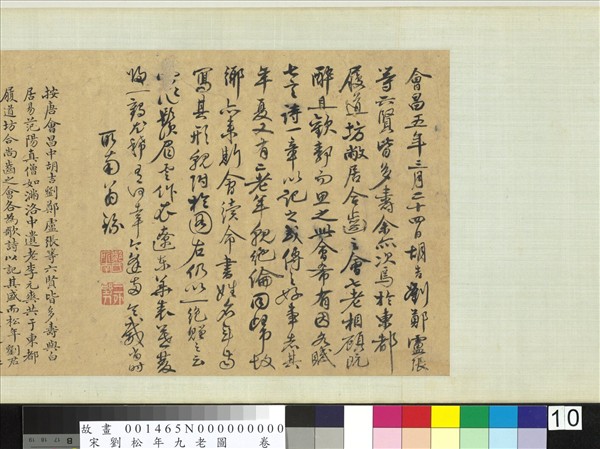 會昌五年三月二十四日胡吉劉鄭盧張
等六賢皆多壽余亦次焉於東都
履道坊敝居合齒之會七老相顧既
醉且歡靜而思之此會希有因各賦
七言詩一章以記之或傳之好事者其
年夏又有二老年貌絕倫同歸故
鄉亦來斯會續命書姓名年齒
寫其形貌附於圖右仍以一絕贈之云
作鬚眉雲作衣遼東華表暮雙
歸一鶴猶稀有何幸今逢兩令威當時
所南翁
按唐會昌中胡吉劉鄭盧張等六賢皆多壽與白
居易范陽真僧如滿洛中遺老李元爽共于東都
履道坊合尚齒之會各為歌詩以記其盛而松年劉君
故畫 001465N000000000
宋劉松年九老圖 卷
10